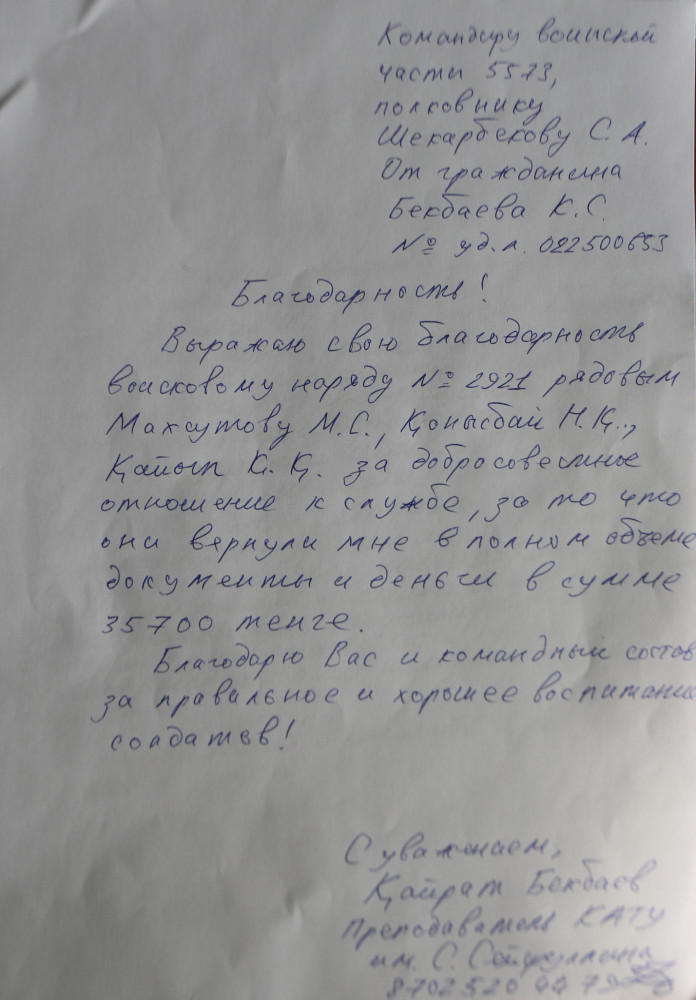 Командиру воинской
части 5573,
полковнику
Шекарбекову С. А.
От гражданина
Бекбаева К. С.
№ уд. л. 022500653
Благодарность!
Выражаю свою благодарность
воисковому наряду № 2921 рядовым
Махсутову М. С., Қонысбай Н. Қ.,
Қайып К. Қ. за добросовестное
отношение к службе, за то что
они вернули мне в полном объеме
документы и деньги в сумме
35700 тенге.
Благодарю Вас и командный состав
за правильное и хорошее воспитание
солдатов!
С уважением,
Қайрат Бекбаев
Преподаватель КАТУ
им. С. Сейфуллина
8 702 520 44 79